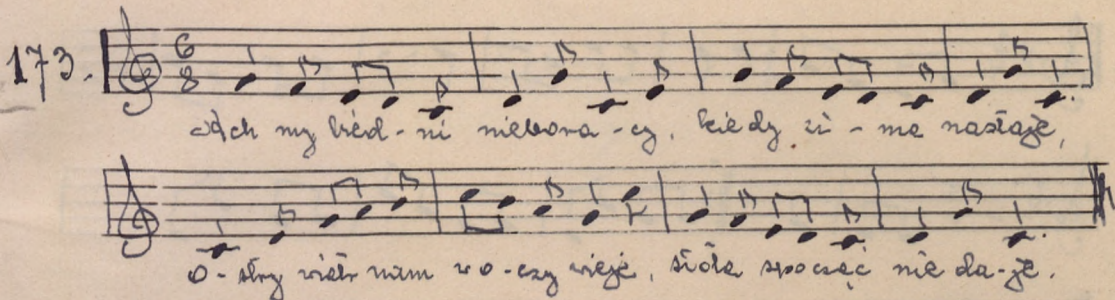 173.
6
8
Ach my biéd-ni niebora-cy, kiedy zi-ma nastaje,
o-stry wiatr nam w o-czy wieje, siole spocząć nie da-je.